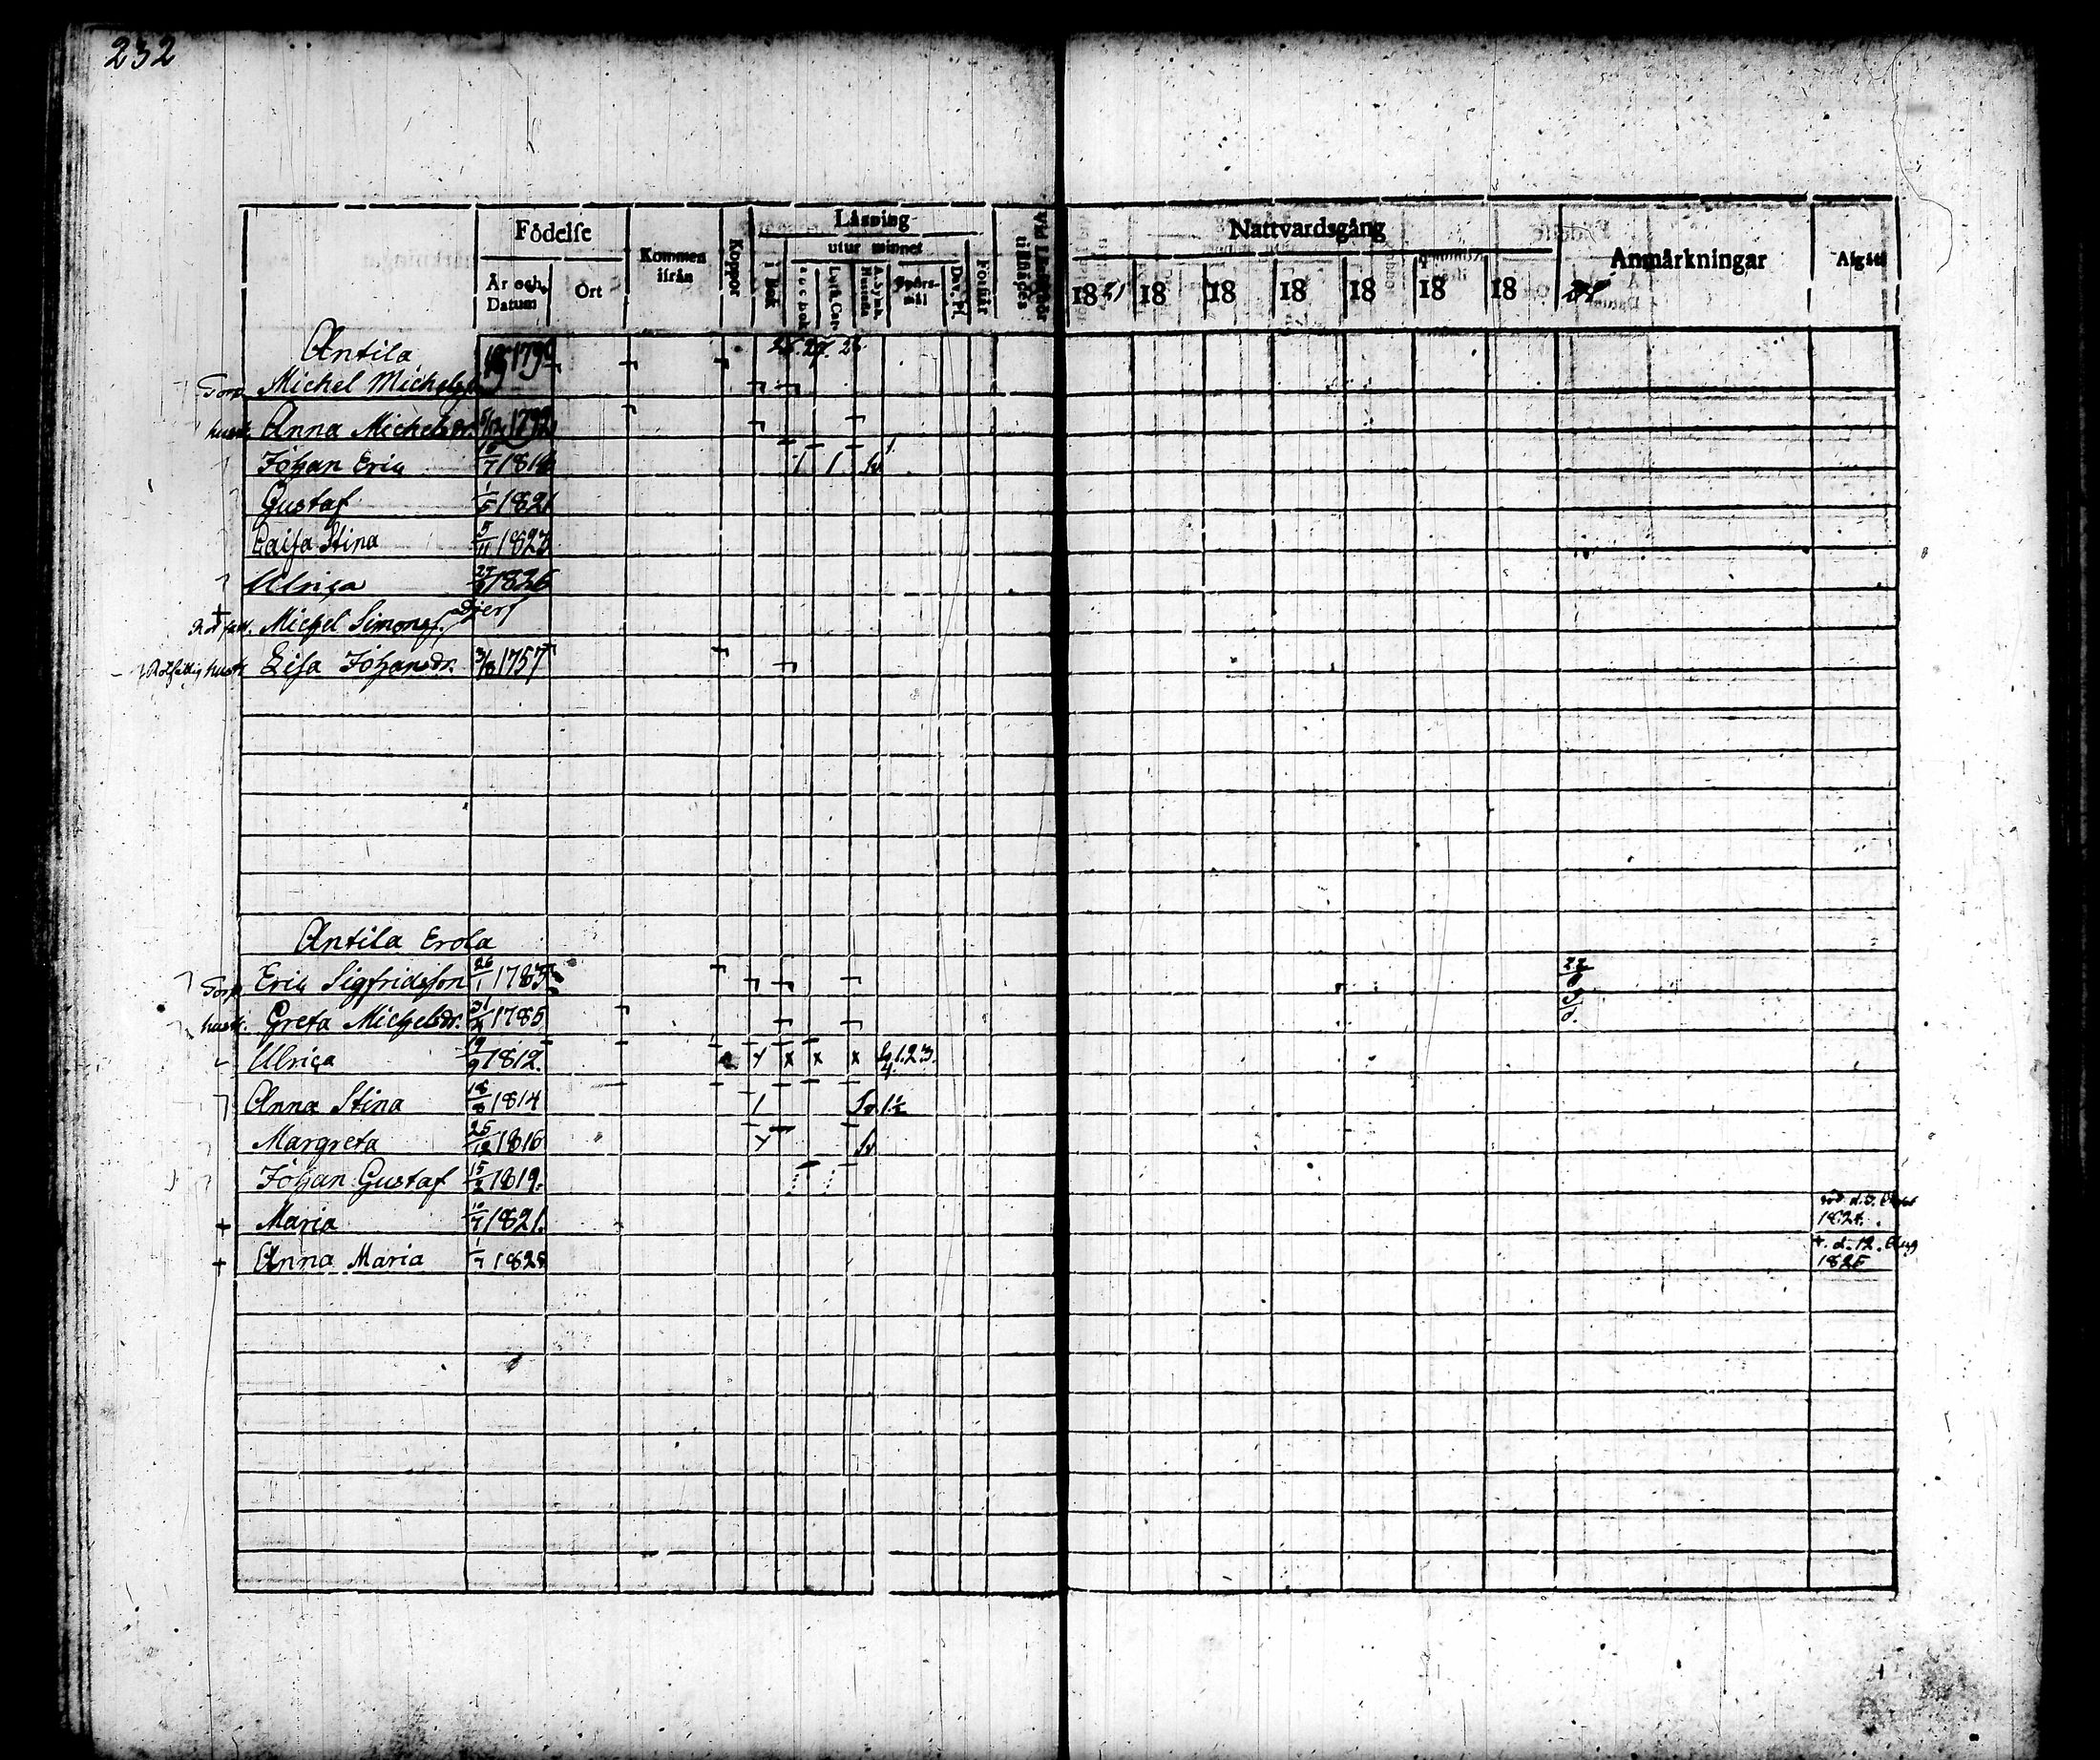 232
Födelse
Kommen ifrån
Koppor
Läsning
utur minnet
i Bok
a b c bok
Luth. Cat.
A. Symb. Hustafla
Spörsmål
Dav. Ps.
Förstår
Vid Läsförhör tillstädes
Nattvardsgång
Anmärkningar
Afgått
År och Datum
Ort
18 18 18 18 18 18 18
Antila
Torp. Michel Michelss. 1790
hustr. Anna Michelsdr. 1792
Johan Eric 1818
Gustaf 1821
Caisa Stina 5/11 1823
Ulrica 1826
Michel Simonss. Djerf
Rotfattig hustr. Lisa Johansdr. 1757
Antila Erola
Torp. Eric Sigfridsson 26/1 1783
hustr. Greta Michelsdr. 1785
Ulrica 19/9 1812. x x x 1.2.3. 4.
Anna Stina 18/8 1814 Sv. 1½
Margreta 25/12 1816 Sv
Johan Gustaf 15/2 1819.
+ Maria 10/7 1821. död d. 1824.
+ Anna Maria 1825 +. d. 12. Aug 1825